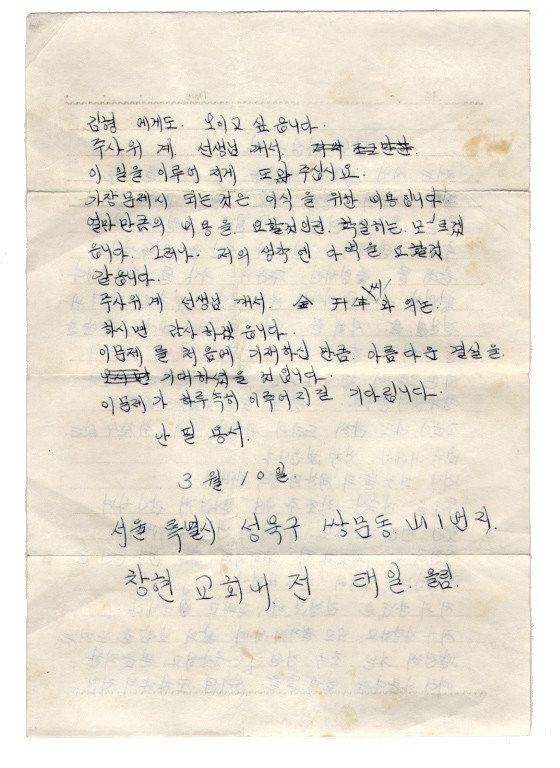 김형 에게도. 보이고 싶읍니다.
주사위 계 선생님 께서.
이 일을 이루어 지게 도와 주십시요.
가장문제시 되는것은 이식 을 위한 비용입니다.
얼만 만큼의 비용을 요할것인면. 확실히는. 모르겠
읍니다. 그러나. 저의 생각엔 다액을 요할것
같읍니다.
주사위계 선생님 께서. 金 씨/ 와 의논.
하시면 감사하겠 읍니다.
이문제 를 처음에 기재하신 만큼. 아름다운 결실을.
기대하였을 것입니다.
이문제가 하루속히 이루어지길 기다립니다.
난필 용서.
3월 10일
서울 특별시 성북구 쌍문동. 山1번지.
창현 교회내. 전 태일. 올림.